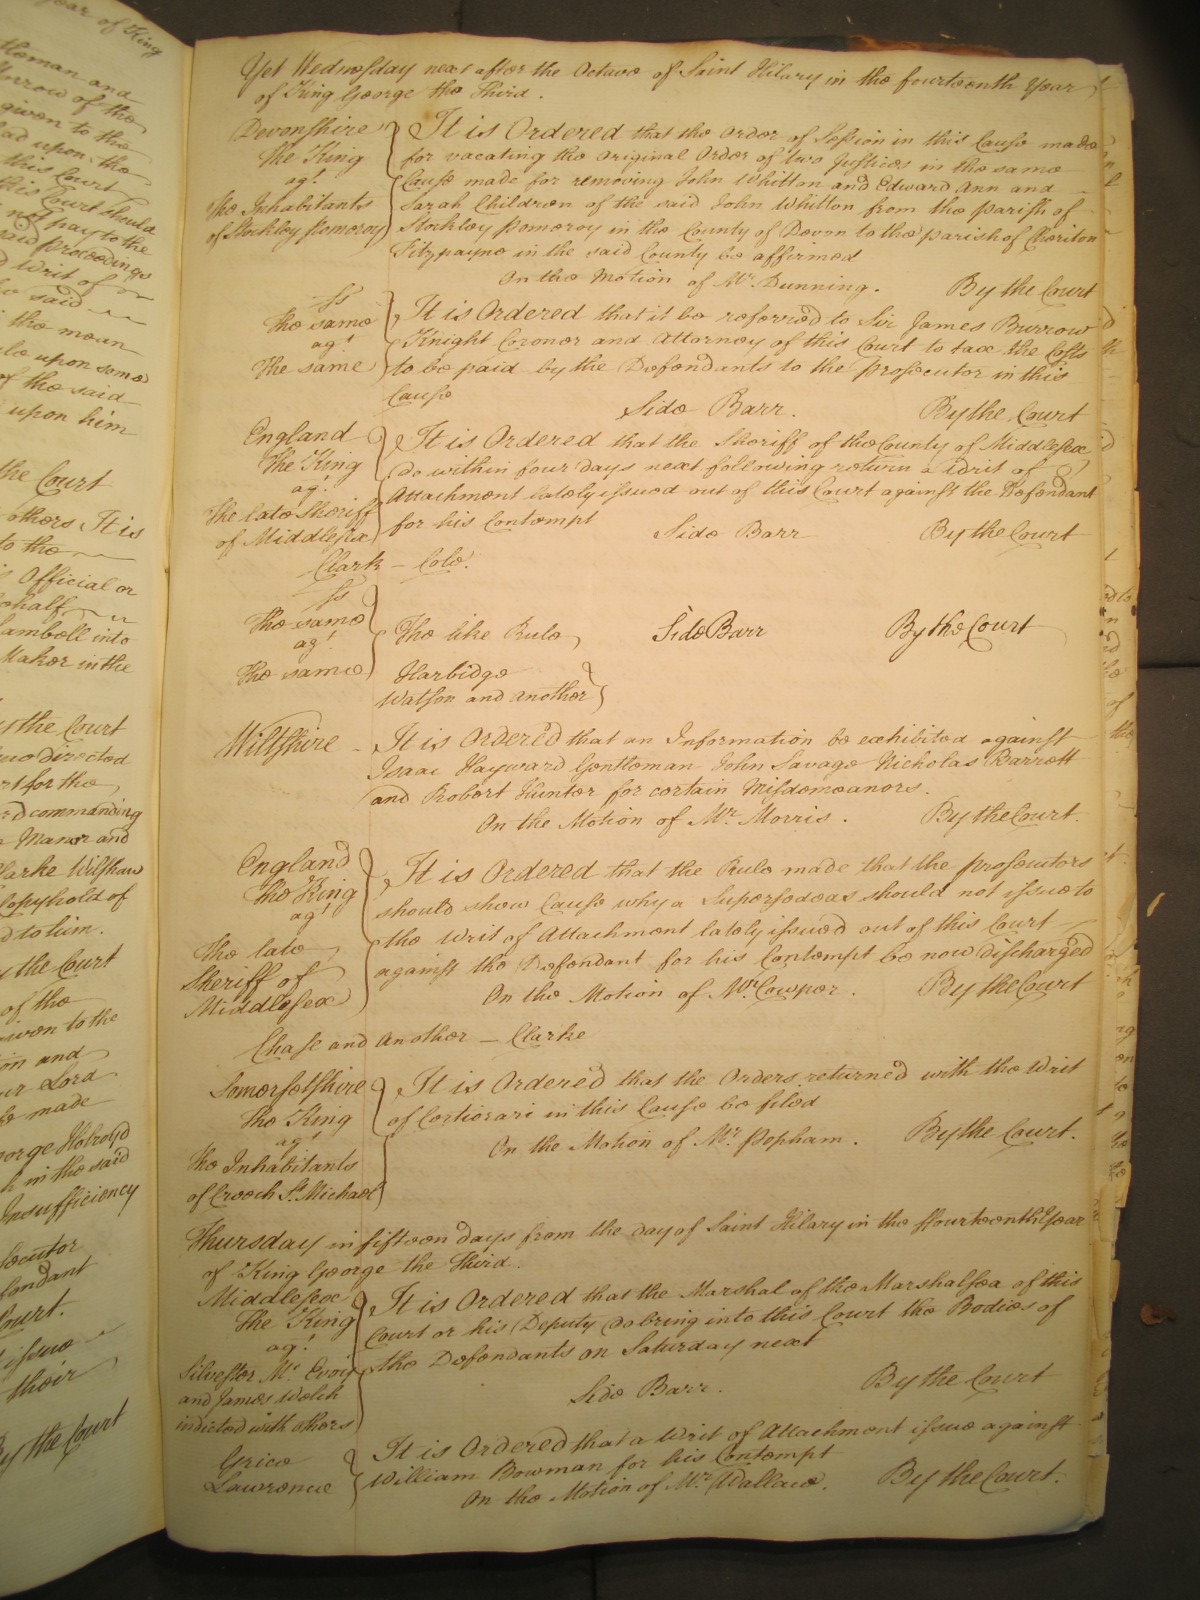 Year of King
Woman and
Morrow of the
given to the
lad upon the
this Court
this Court should
not pay to the
said proceedings
Writ of
said
the mean
rule upon some
of the said
upon him
the Court
others It is
to the
Official or
behalf
Lambell into
Maker in the
By the Court
directed
for the
commanding
Manor and
Clarke Wilshaw
Copyhold of
to him.
By the Court
of the
given to the
and
our Lord
be made
George Holroyd
in the said
Insufficiency
Court.
issue
their
By the Court
Yet Wednesday next after the Octave of Saint Hilary in the fourteenth Year
of King George the Third.
Devonshire It is Ordered that the Order of Session in this Cause made
The King for vacating the Original Order of two Justices in the same
agt. Cause made for removing John Whitton and Edward Ann and
The Inhabitants Sarah Children of the said John Whitton from the parish of
of Stockley Pomeroy Stockley Pomeroy in the County of Devon to the parish of Cheriton
Fitzpayne in the said County be affirmed
On the Motion of Mr. Dunning. By the Court
Ss It is Ordered that it be referred to Sir James Burrow
The same Knight Coroner and Attorney of this Court to tax the Costs
agt
The same to be paid by the Defendants to the prosecutor in this
Cause
Side Barr. By the Court
England It is Ordered that the Sheriff of the County of Middlesex
The King do within four days next following return a Writ of
agt. Attachment lately issued out of this Court against the Defendant
The late Sheriff for his Contempt
of Middlesex Side Barr By the Court
Clark – Cole.
Ss
The same
agt The like Rule Side Barr By the Court
The same Harbidge
Watson and another
Wiltshire - It is Ordered that an Information be exhibited against
Isaac Hayward Gentleman John Savage Nicholas Barrett
and Robert Hunter for certain Misdemeanors.
On the Motion of Mr. Morris. By the Court.
England It is Ordered that the Rule made that the prosecutors
The King should shew Cause why a Supersedeas should not issue to
agt
The late the Writ of Attachment lately issued out of this Court
Sheriff of against the Defendant for his Contempt be now discharged
Middlesex On the Motion of Mr. Cowper. By the Court
Chase and Another – Clarke
Somersetshire It is Ordered that the Orders returned with the Writ
The King of Certiorari in this Cause be filed
agt On the Motion of Mr. Popham. By the Court.
The Inhabitants
of Creech St. Michael
Thursday in fifteen days from the day of Saint Hilary in the ffourteenth Year
of King George the Third.
Middlesex It is Ordered that the Marshal of the Marshalsea of this
The King Court or his Deputy do bring into this Court the Bodies of
agt. the Defendants on Saturday next
Silvester Mc. Evoy
and James Welch Side Barr. By the Court
indicted with others
Grice It is Ordered that a Writ of Attachment issue against
Lawrence William Bowman for his Contempt
On the Motion of Mr. Wallace. By the Court.